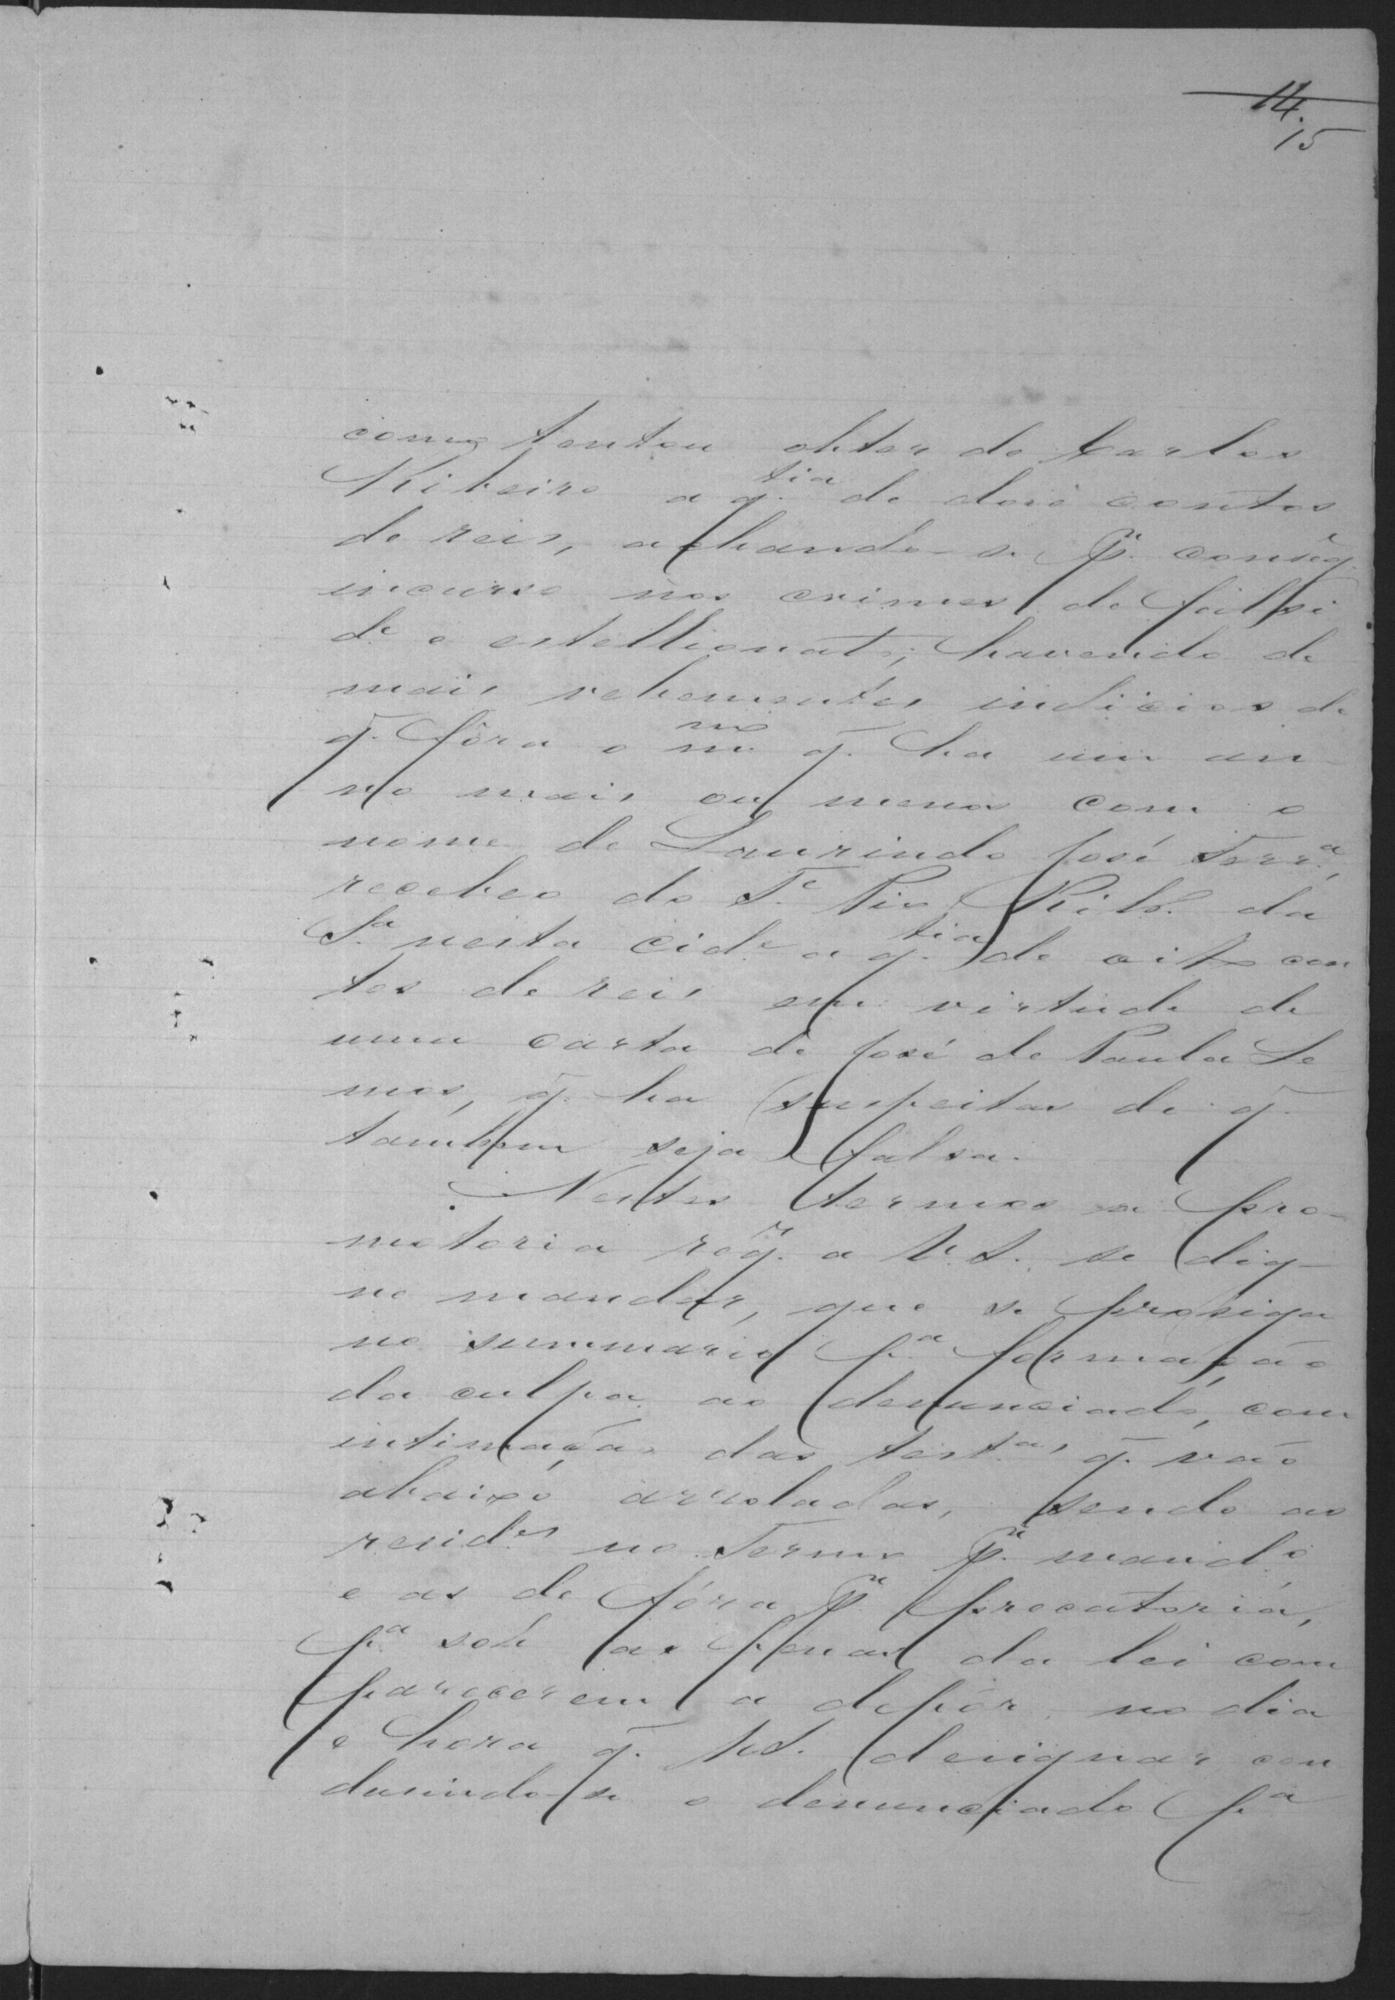 14.
15
como tentou obter de Carlos
Ribeiro a q.tia de dois contos
de reis, achando-se pr. conseg.
incurso nos crimes de falsi
de e estellionato; havendo de
mais vehementes indicios de
q. fôra o mmo q. ha um an-
no mais ou menos com o
nome de Laurindo José Ferra,
recebeo do Te Pio Ribr. da
Sa nesta cide a q.tia de oito con
tos de reis em virtude de
uma carta de José de Paula Le
mos, q. ha suspeitas de q.
tambem seja falsa.
Nestes termos a pro-
motoria reqr. a V.S. se dig-
ne mandar, que se prosiga
no summario pa formação
da culpa ao denunciado, com
intimação das testas q. vão
abaixo arroladas, sendo as
resides no Termo pr. mando
e as de fóra pr. precatoria,
pa sob as penas da lei com
parecerem a depôr no dia
e hora q. V.S. designar con
dusindo-se o denunciado pa